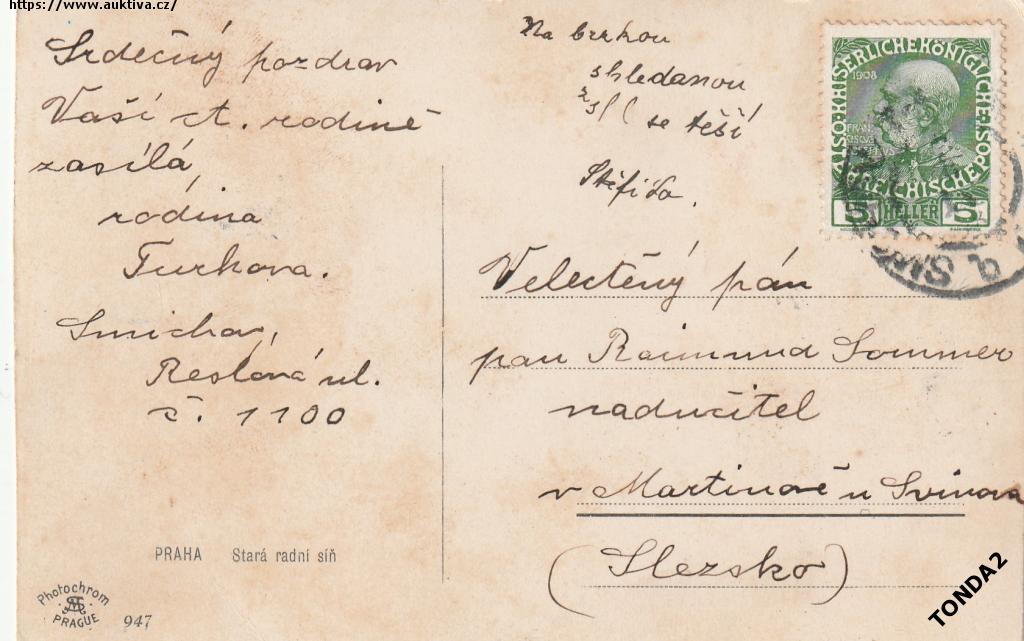 https://www.auktiva.cz/
Srdečný pozdrav
Vaší ct. rodině
zasílá
rodina
Turkova.
Smíchov,
Resslová ul.
č. 1100
Na brzkou
shledanou
se těší
Štěfiča.
KAISERLICHE KÖNIGLICHE
OSTERREICHISCHE POST
1908
5 HELLER 5
SM
Velectěný pán
pan Raimund Sommer
nadučitel
v Martinově u Svinova
(Slezsko)
PRAHA Stará radní síň
Photochrom
PRAGUE
947
TONDA2